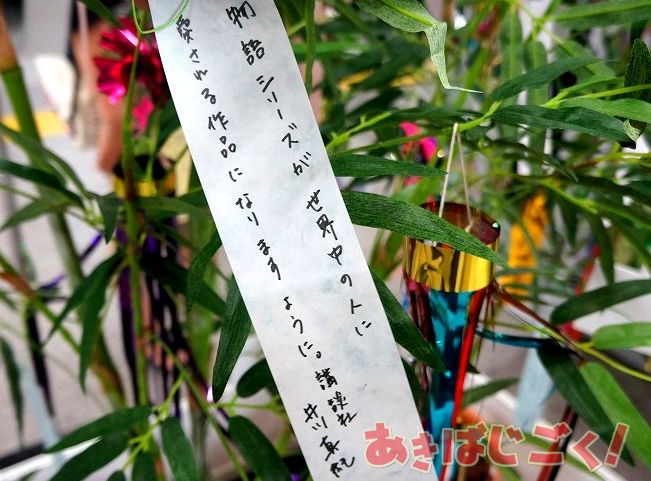 物語シリーズが世界中の人に
愛される作品になりますように。講談社
井川真
あきばじごく!